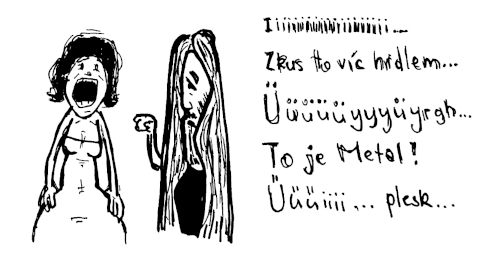 Iiiiiiiiiiiiiiiiiiii...
Zkus to víc hrdlem...
Üüüüüüyyyüyrgh...
To je Metal!
Üüüiiii... plesk...